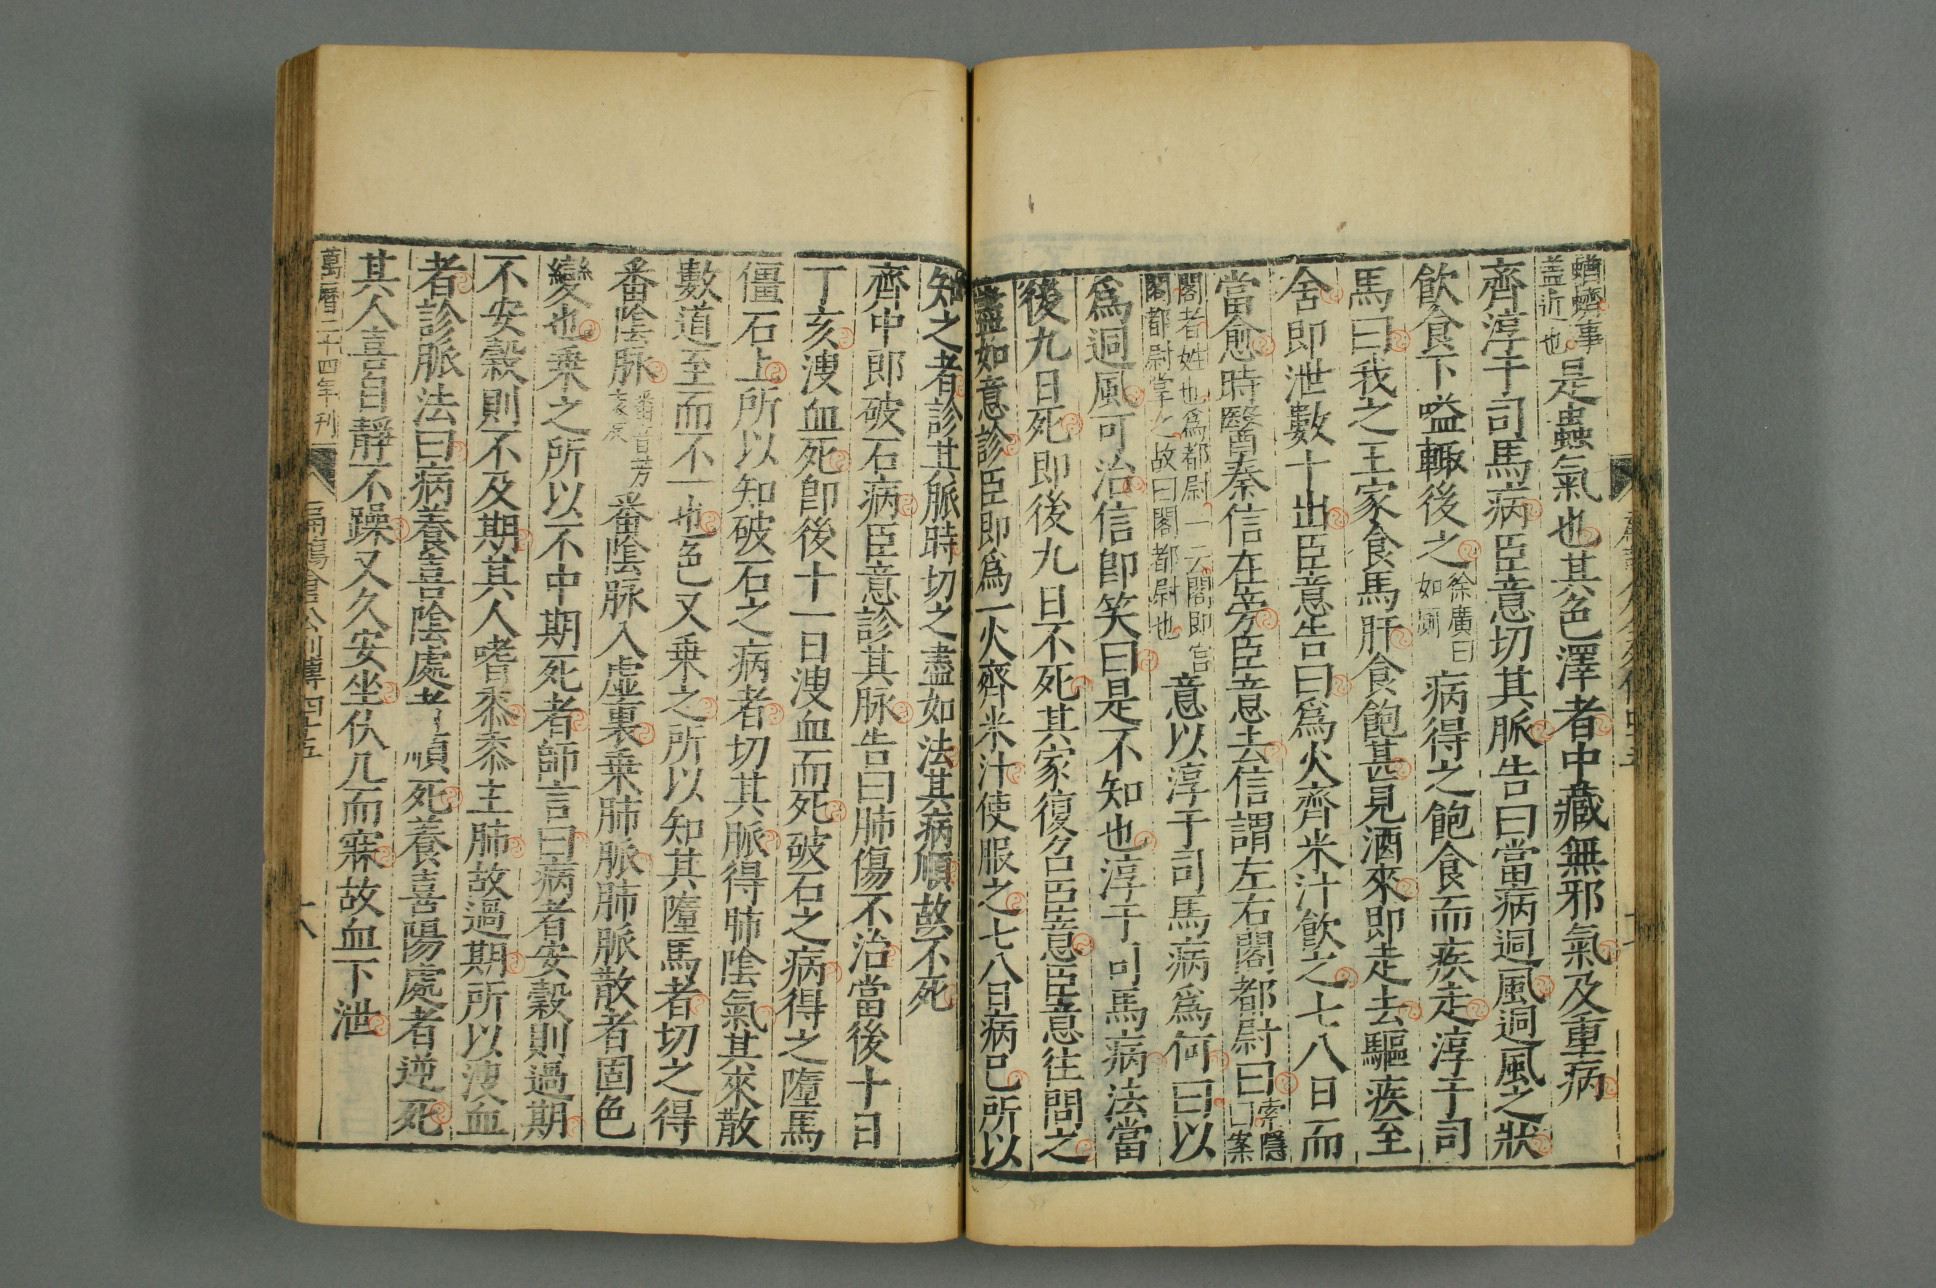 蠐螬事蓋近也是蟲氣也其色澤者中藏無邪氣及重病
齊淳于司馬病臣意切其脈告曰當病迵風迵風之狀
飲食下嗌輒後之徐廣曰如廁病得之飽食而疾走淳于司
馬曰我之王家食馬肝食飽甚見酒來即走去驅疾至
舍即泄數十出臣意告曰為火齊米汁飲之七八日而
當愈時醫秦信在旁臣意去信謂左右閣都尉曰索隱曰案
閣者姓也為都尉一云閣即宮閣都尉掌之故曰閣都尉也意以淳于司馬病為何曰以
為迵風可治信即笑曰是不知也淳于司馬病法當
後九日死即後九日不死其家復召臣意臣意往問之
盡如意診臣即為一火齊米汁使服之七八日病已所以
知之者診其脈時切之盡如法其病順故不死
齊中郎破石病臣意診其脉告曰肺傷不治當後十日
丁亥溲血死即後十一日溲血而死破石之病得之墮馬
僵石上所以知破石之病者切其脈得肺陰氣其來散
數道至而不一也色又乗之所以知其墮馬者切之得
番陰脉番音芳袁反番陰脉入虛裏乗肺脈肺脈散者固色
變也乗之所以不中期死者師言曰病者安穀則過期
不安穀則不及期其人嗜黍黍主肺故過期所以溲血
者診脈法曰病養喜陰處者順死養喜陽處者逆死
其人喜自靜不躁又久安坐伏几而寐故血下泄
萬曆二十四年刊 扁鵲倉公列傳四十五 十八